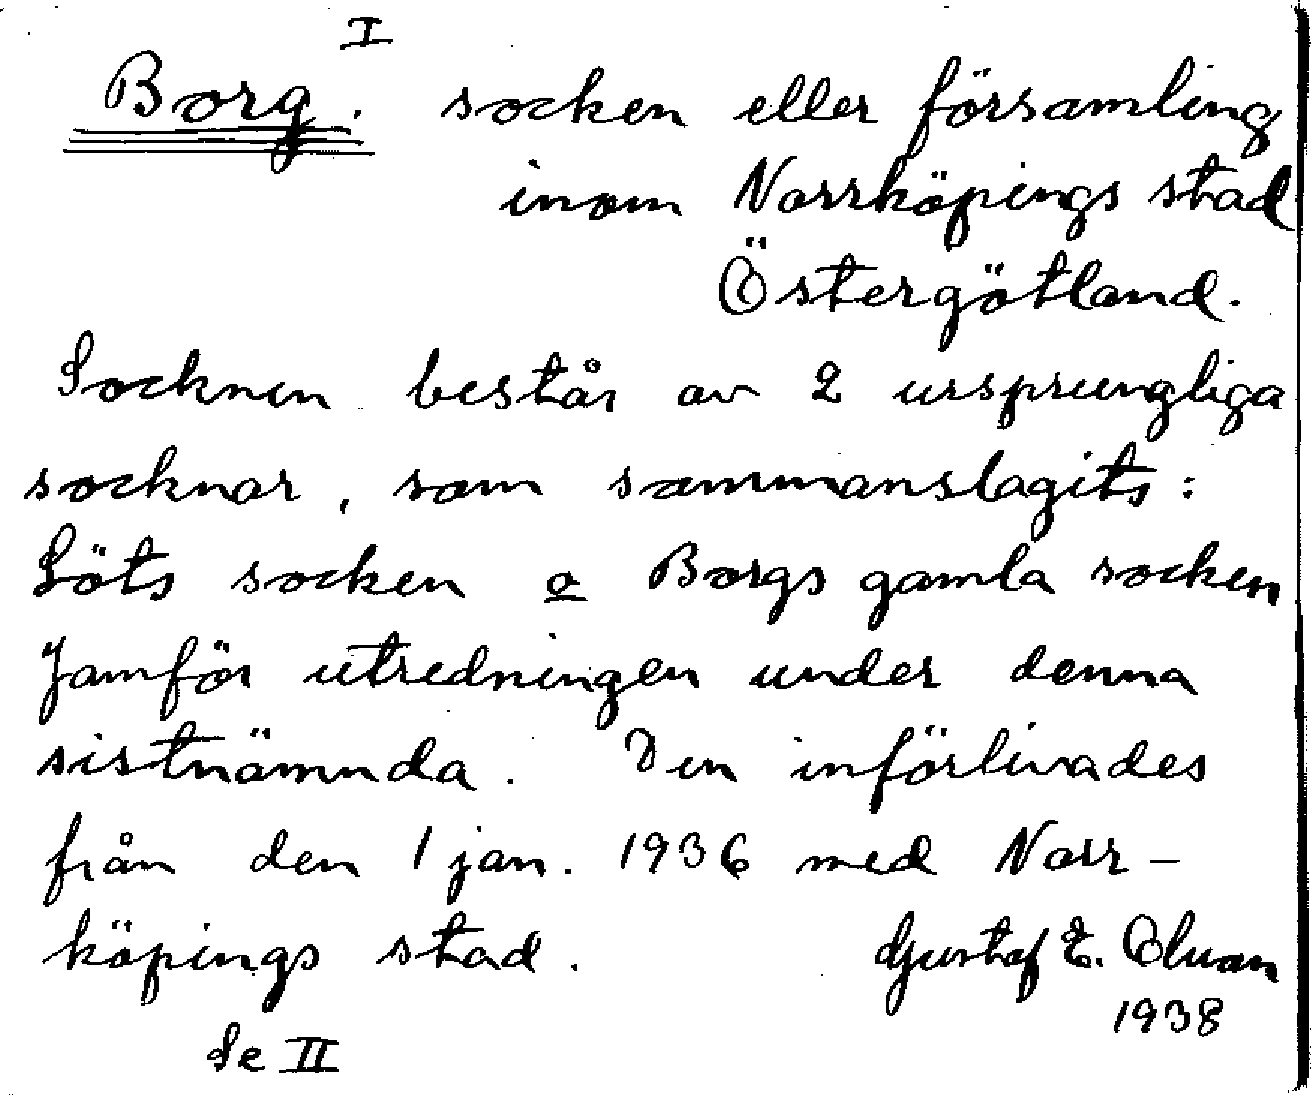 I
Borg. socken eller församling
inom Norrköpings stad
Östergötland.
Socknen består av 2 ursprungliga
socknar, som sammanslagits:
Löts socken o Borgs gamla socken
Jamför utredningen under denna
sistnämnda. Den införlivades
från den 1 jan. 1936 med Norr-
köpings stad. Gustaf E.
1938
Se II